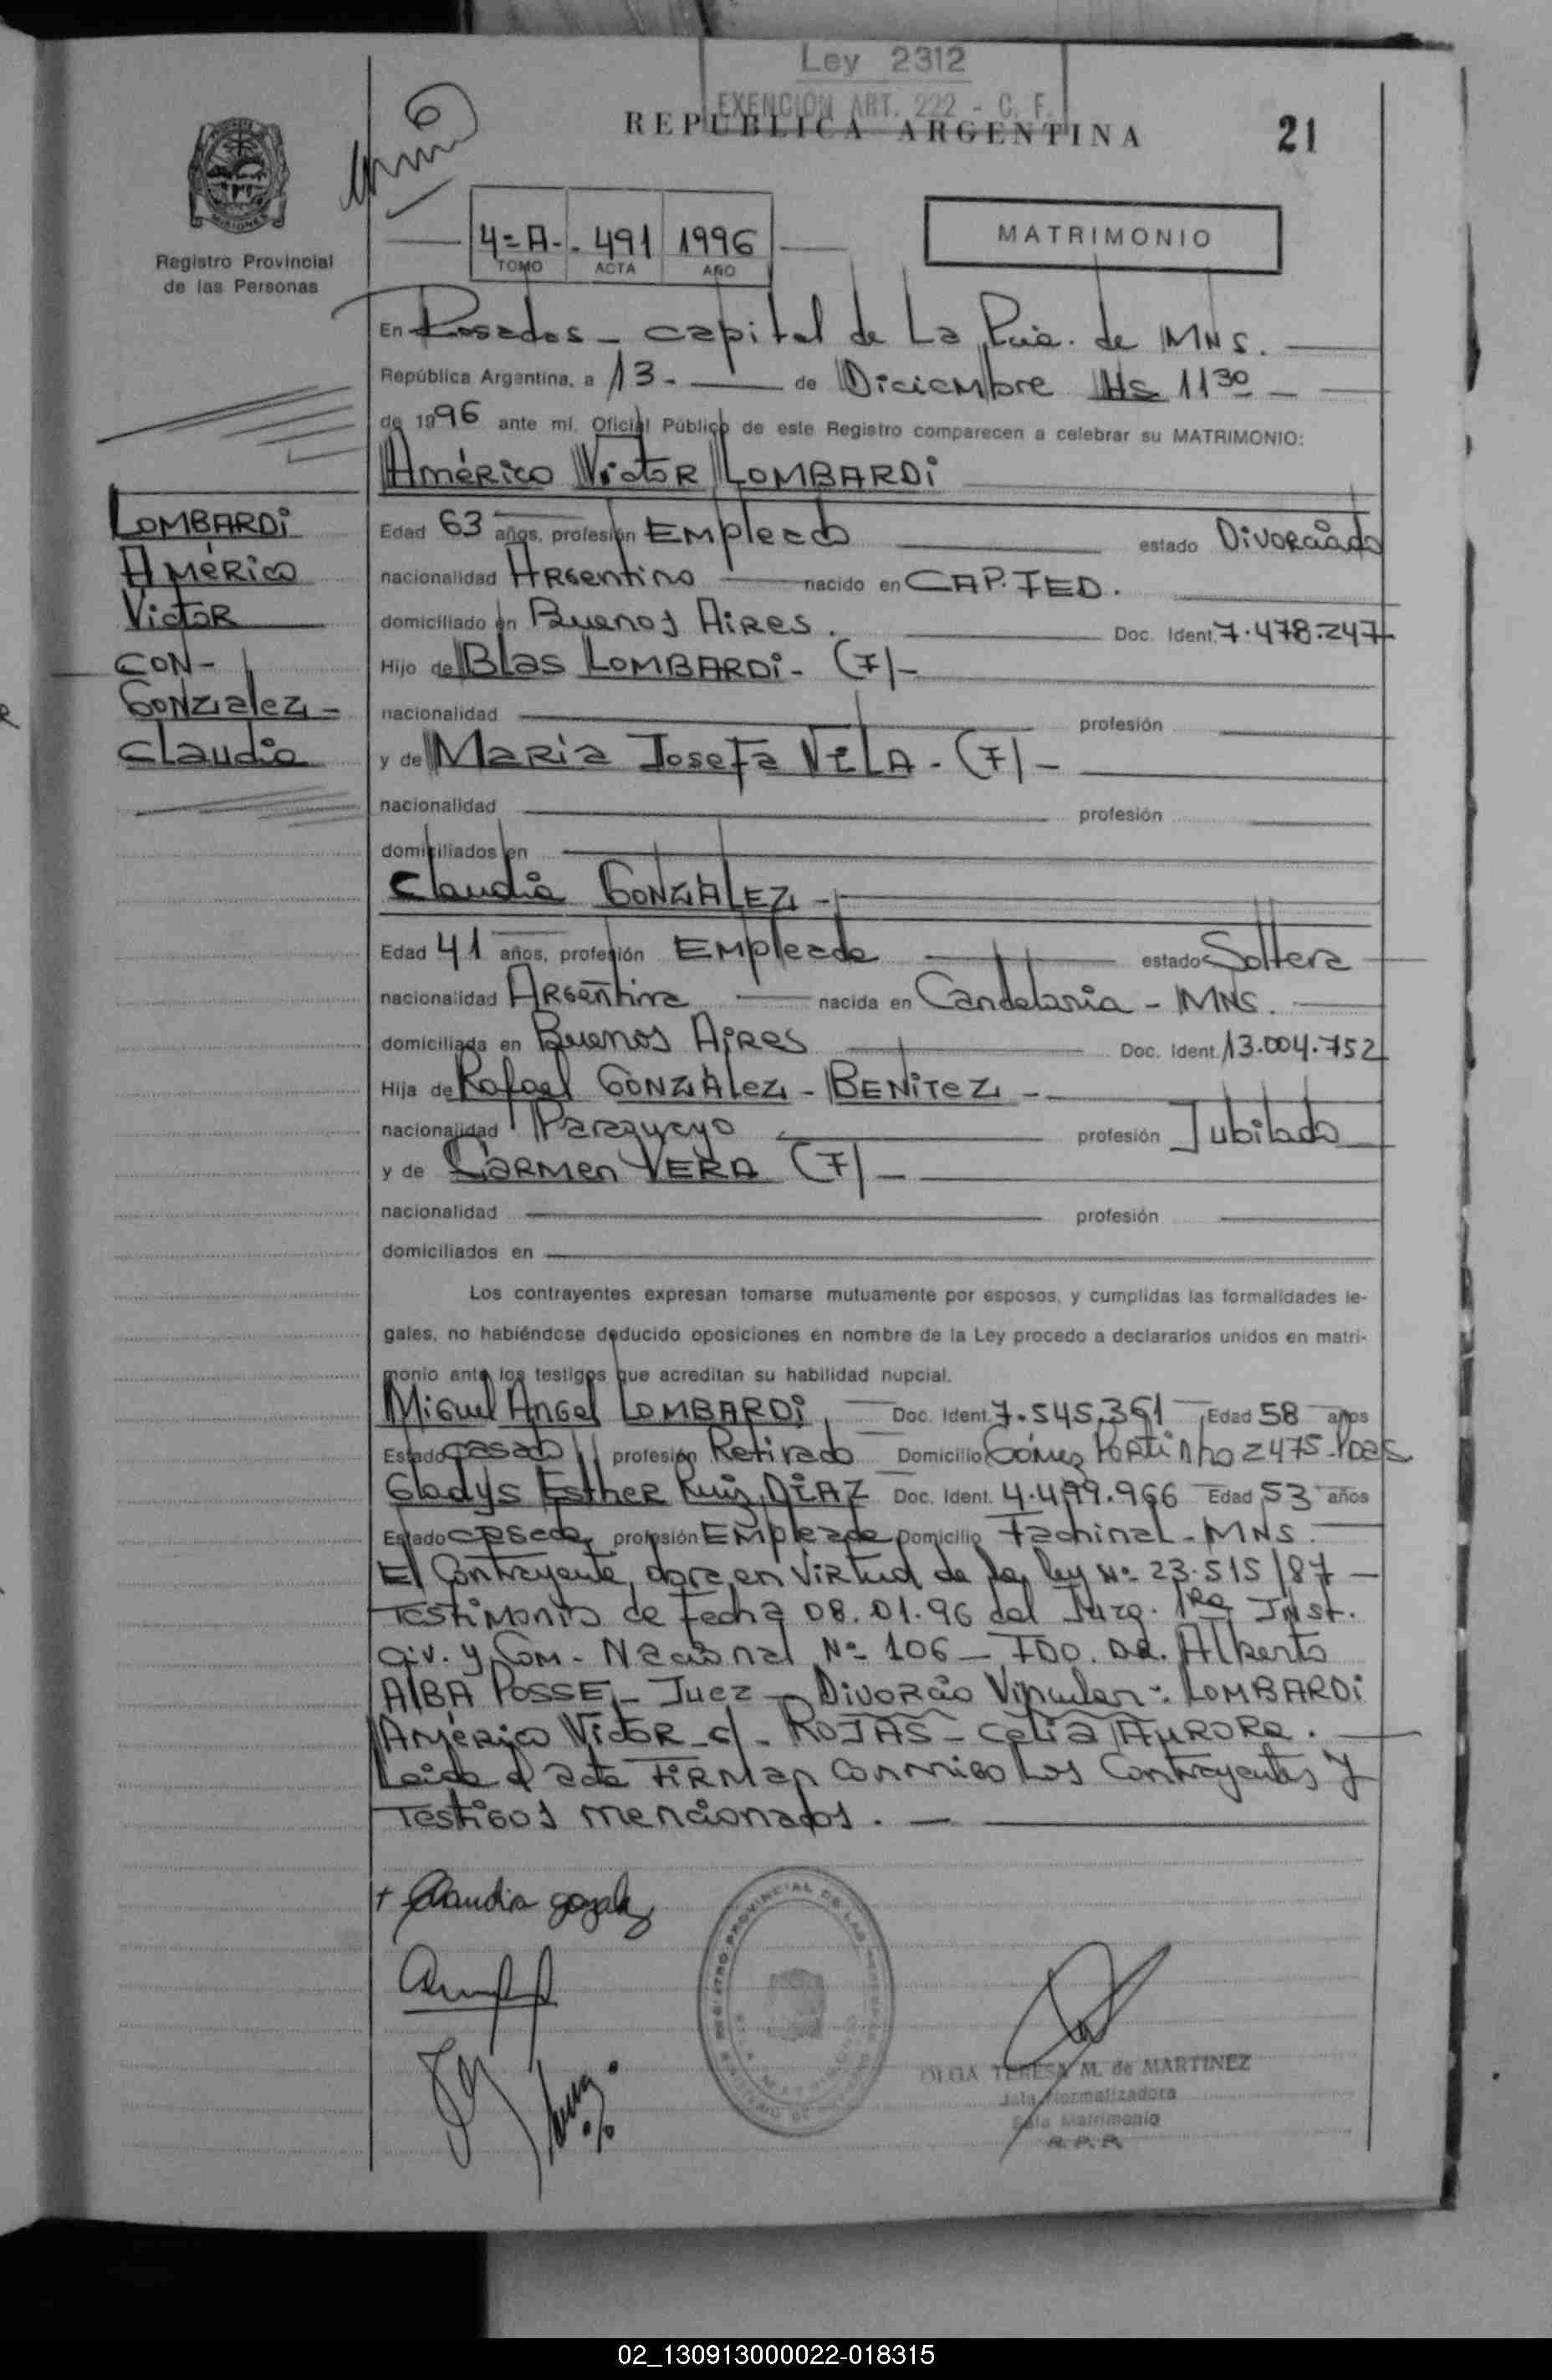 Ley 2312
EXENCION ART. 222 - C. F.
REPUBLICA ARGENTINA
21
MISIONES
Registro Provincial
de las Personas
4=A-. 491 1996
TOMO ACTA AÑO
MATRIMONIO
En Posadas - capital de La Pcia. de MNS.
República Argentina, a 13.- de Diciembre Hs 11 30 -
de 1996 ante mí, Oficial Público de este Registro comparecen a celebrar su MATRIMONIO:
Américo Victor LOMBARDi
LOMBARDi
AMéRico
Victor
CON-
GONZalez -
Claudia
Edad 63 años, profesión EMpleado estado DivoRciado
nacionalidad ARgentino nacido en CAP. FED.
domiciliado en Buenos AiRes. Doc. Ident. 7.478.247
Hijo de Blas LOMBARDi - (F) -
nacionalidad profesión
y de MaRia Josefa ViLA - (F) -
nacionalidad profesión
domiciliados en
Claudia GONZALEZ -
Edad 41 años, profesión EMpleada estado Soltera
nacionalidad ARgentina nacida en Candelaria - MNS.
domiciliada en Buenos AiRes Doc. Ident. 13.004.752
Hija de Rafael GONZALEZ - BENiTEZ -
nacionalidad Paraguayo profesión Jubilado
y de CaRMen VERA (F) -
nacionalidad profesión
domiciliados en
Los contrayentes expresan tomarse mutuamente por esposos, y cumplidas las formalidades le-
gales, no habiéndose deducido oposiciones en nombre de la Ley procedo a declararlos unidos en matri-
monio ante los testigos que acreditan su habilidad nupcial.
Miguel Angel LOMBARDi, Doc. Ident. 7.545.361 Edad 58 años
Estado casado profesión Retirado Domicilio Gómez PORTinho 2475-Pdas
Gladys Esther Ruiz DiAZ Doc. Ident. 4.499.966 Edad 53 años
Estado casada profesión EMpleada Domicilio Fachinal - MNS.
El Contrayente, en ViRtud de la ley Nº 23.515/87 -
Testimonio de fecha 08.01.96 del Juzg. 1Ra INst.
Civ. y Com. Nacional Nº 106 - FDO. DR. Alberto
AlBA POSSE - Juez - DivoRcio Vincular: LOMBARDi
AMéRico VictoR c/. ROJAS - Celia AuRORa.
Leida el acta FiRMan conmigo Los Contrayentes y
Testigos mencionados. -
+ Claudia gonzalez
REGISTRO PROVINCIAL DE LAS PERSONAS
OLGA TERESA M. de MARTINEZ
Jefa Normalizadora
Sala Matrimonio
R. P. P.
02_130913000022-018315